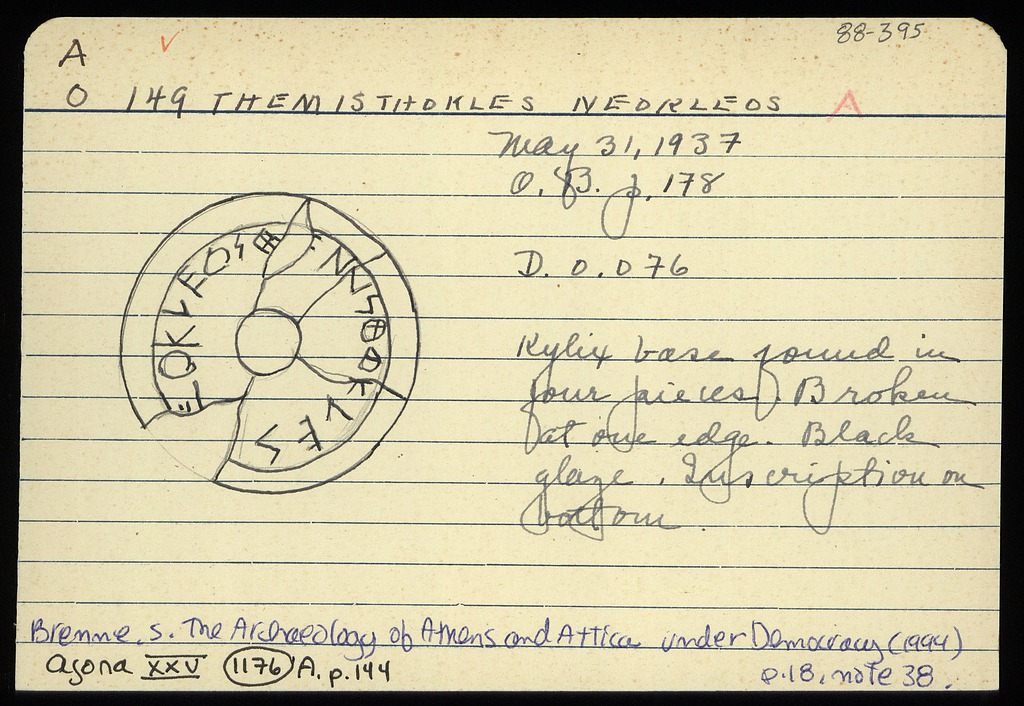 88-395
A
O 149 THEMISTHOKLES NEOKLEOS A
May 31, 1937
O.B. p. 178
D. 0.076
Kylix base found in
four pieces. Broken
at one edge. Black
glaze. Inscription on
bottom.
Brenne, S. The Archaeology of Athens and Attica under Democracy (1994)
p.18, note 38.
Agora XXV 1176 A. p.144